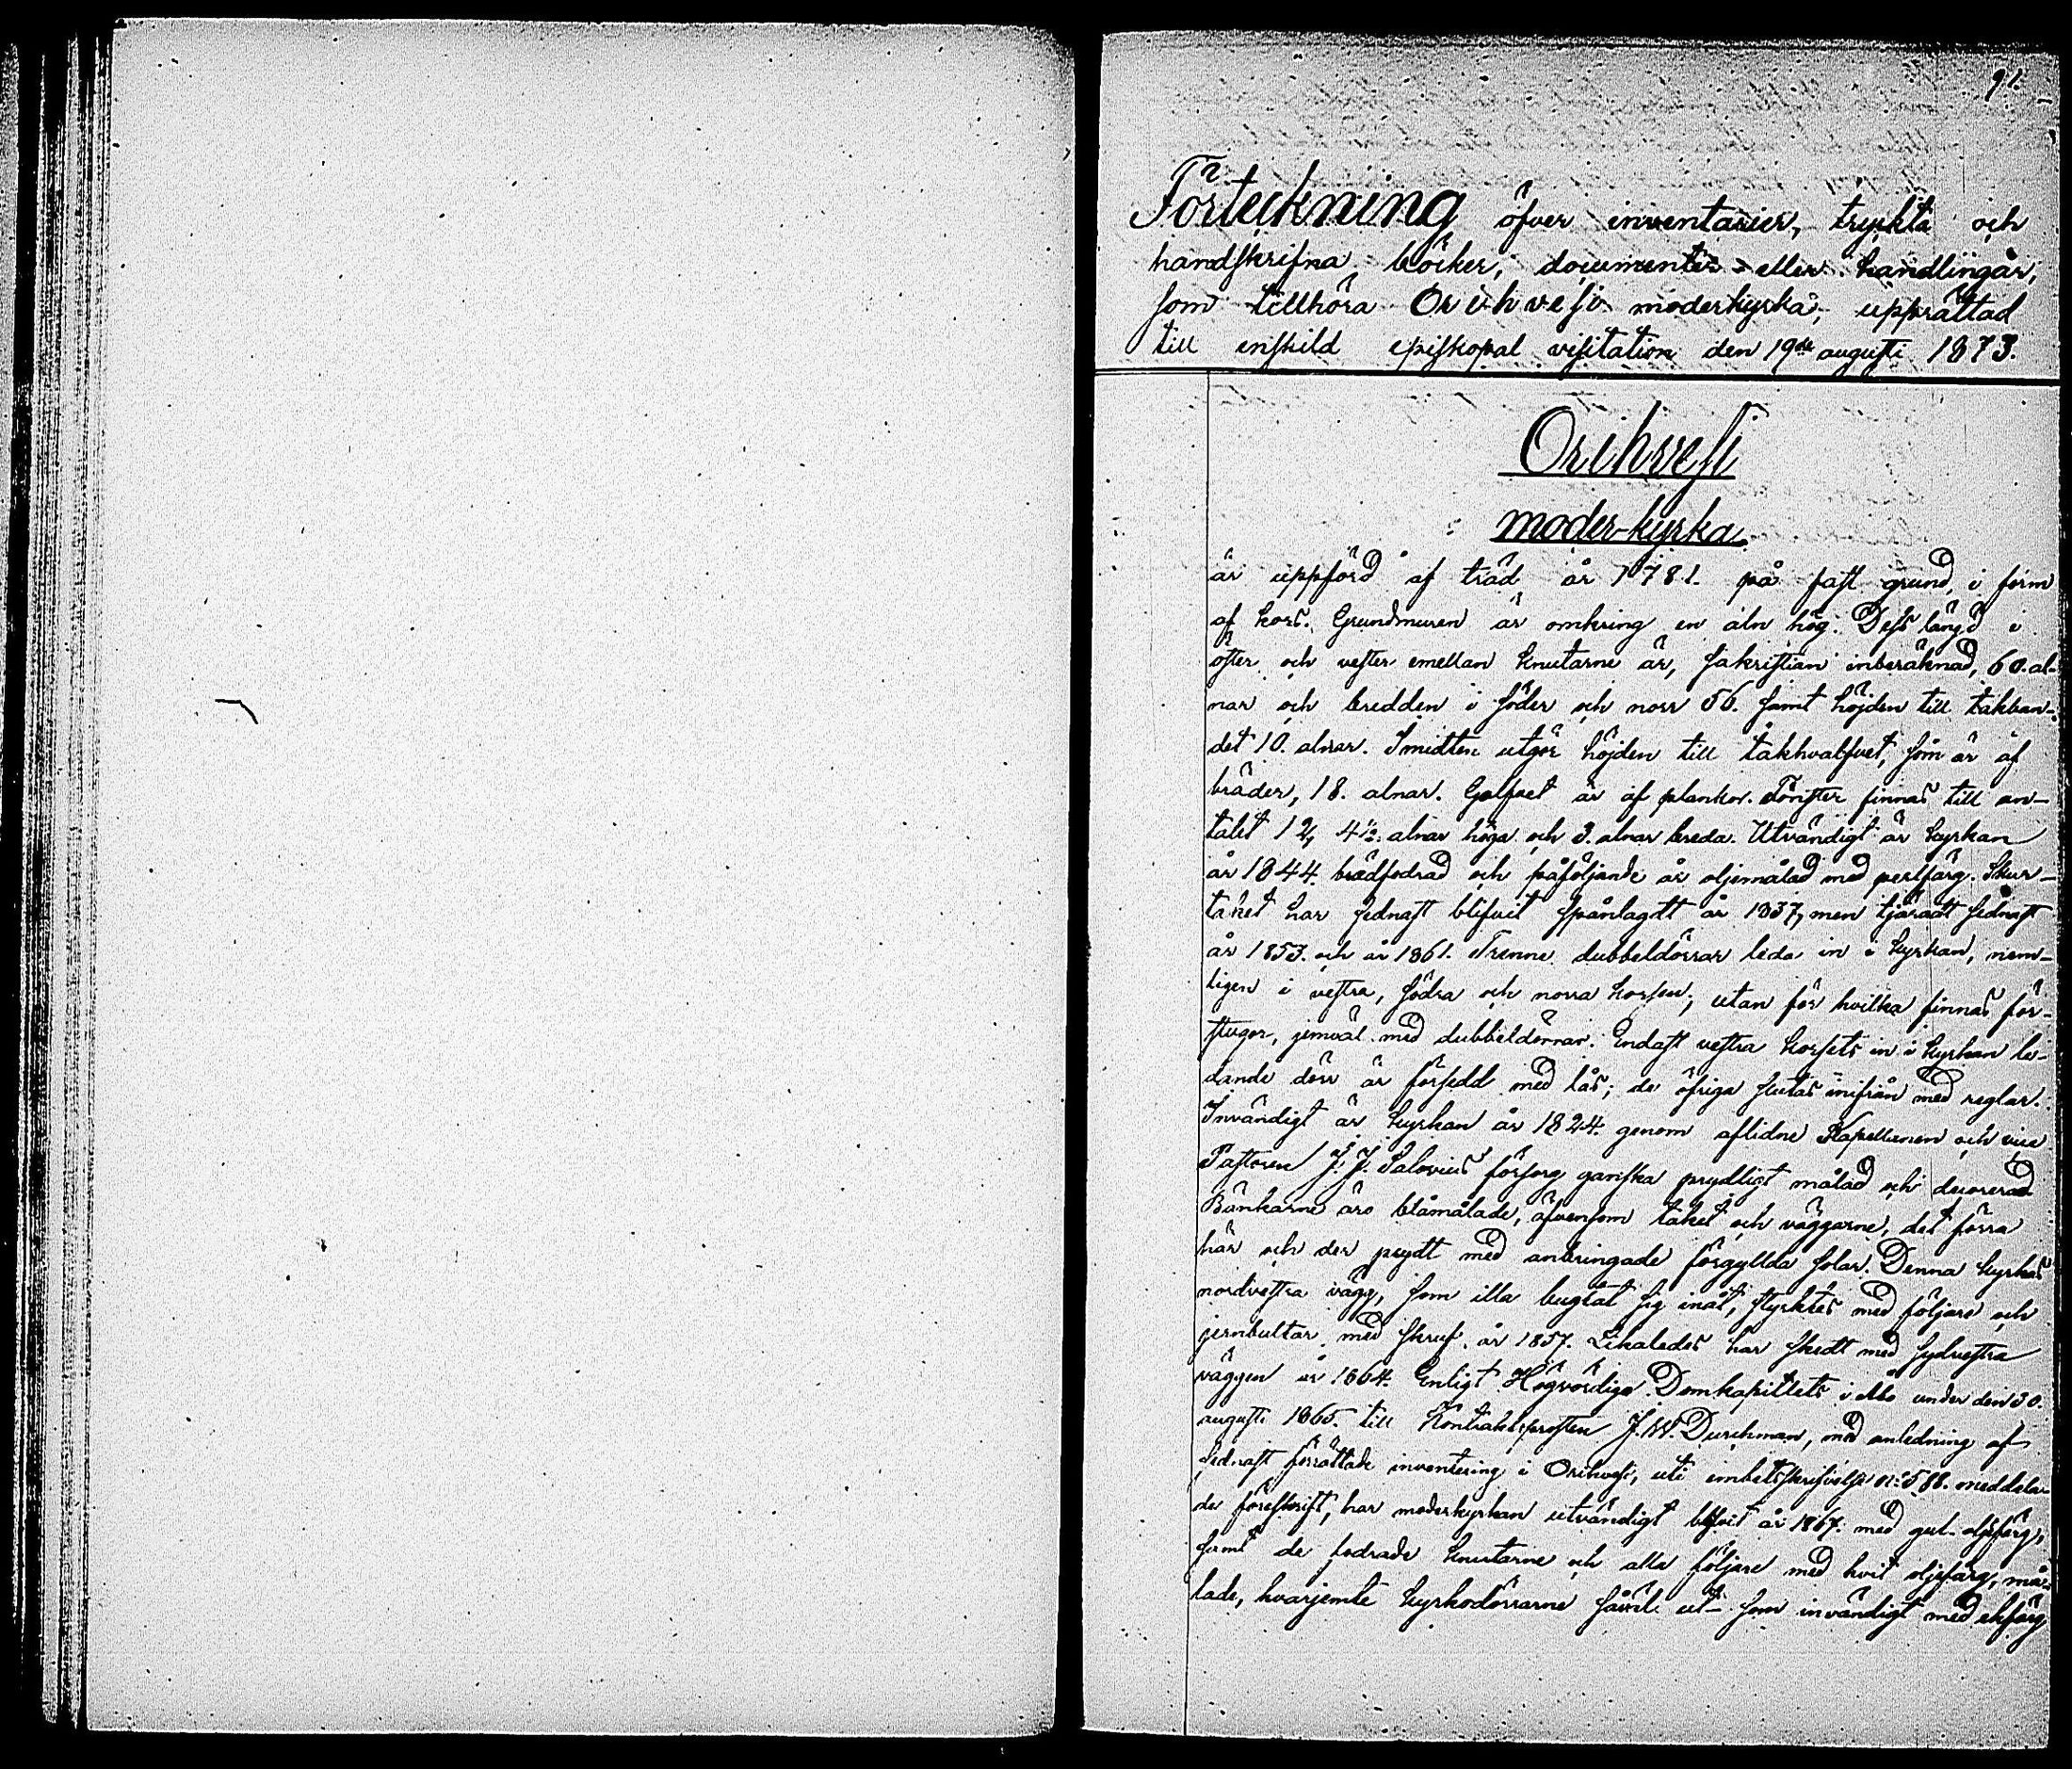 91.
Förteckning öfver inventarier, tryckta och
handskrifna böcker, documenter eller handlingar,
som tillhöra Orihvesi moderkyrka, upprättad
till enskild episkopal visitation den 19de augusti 1873.
Orihvesi
moder-kyrka
är uppförd af träd år 1781. på fast grund, i form
af kors. Grundmuren är omkring en aln hög. Dess längd i
öster och vester emellan knutarne är, sakristian inberäknad, 60. al-
nar och bredden i söder och norr 56. samt höjden till takban-
det 10. alnar. I midten utgör höjden till takhvalfvet, som är af
bräder, 18. alnar. Golfvet är af plankor. Fönster finnas till an-
talet 12, 4½. alnar höga och 3. alnar breda. Utvändigt är kyrkan
år 1844. brädfodrad och påföljande år oljemålad med perlfärg. Skur-
taket har sednast blifvit spånlagdt år 1837, men tjäradt sednast
år 1853. och år 1861. Trenne dubbeldörrar leda in i kyrkan, nem-
ligen i vestra, södra och norra korsen; utan för hvilka finnas för-
stugor, jemväl med dubbeldörrar. Endast vestra korsets in i kyrkan le-
dande dörr är försedd med lås; de öfriga slutas inifrån med reglar.
Invändigt är kyrkan år 1824. genom aflidne Kapellanen och vice
Pastoren J. J. Salovius försorg ganska prydligt målad och decorerad
Bänkarne äro blåmålade, äfvensom taket och väggarne, det förra
här och der prydt med anbringade förgyllda solar. Denna kyrkas
nordvestra vägg, som illa bugtat sig inåt, styrktes med följare och
jernbultar med skruf år 1857. Likaledes har skedt med sydvestra
väggen år 1864. Enligt Högvördiga Domkapitlets i Åbo under den 30.
augusti 1865. till Kontraktsprosten J. W. Durchman, med anledning af
sednast förrättade inventering i Orihvesi, uti embetsskrifvelse n:o 588. meddela-
de föreskrift, har moderkyrkan utvändigt blifvit år 1867. med gul oljefärg,
samt de fodrade knutarne och alla följare med hvit oljefärg, må-
lade, hvarjemte kyrkodörrarne såväl ut- som invändigt med ekfärg